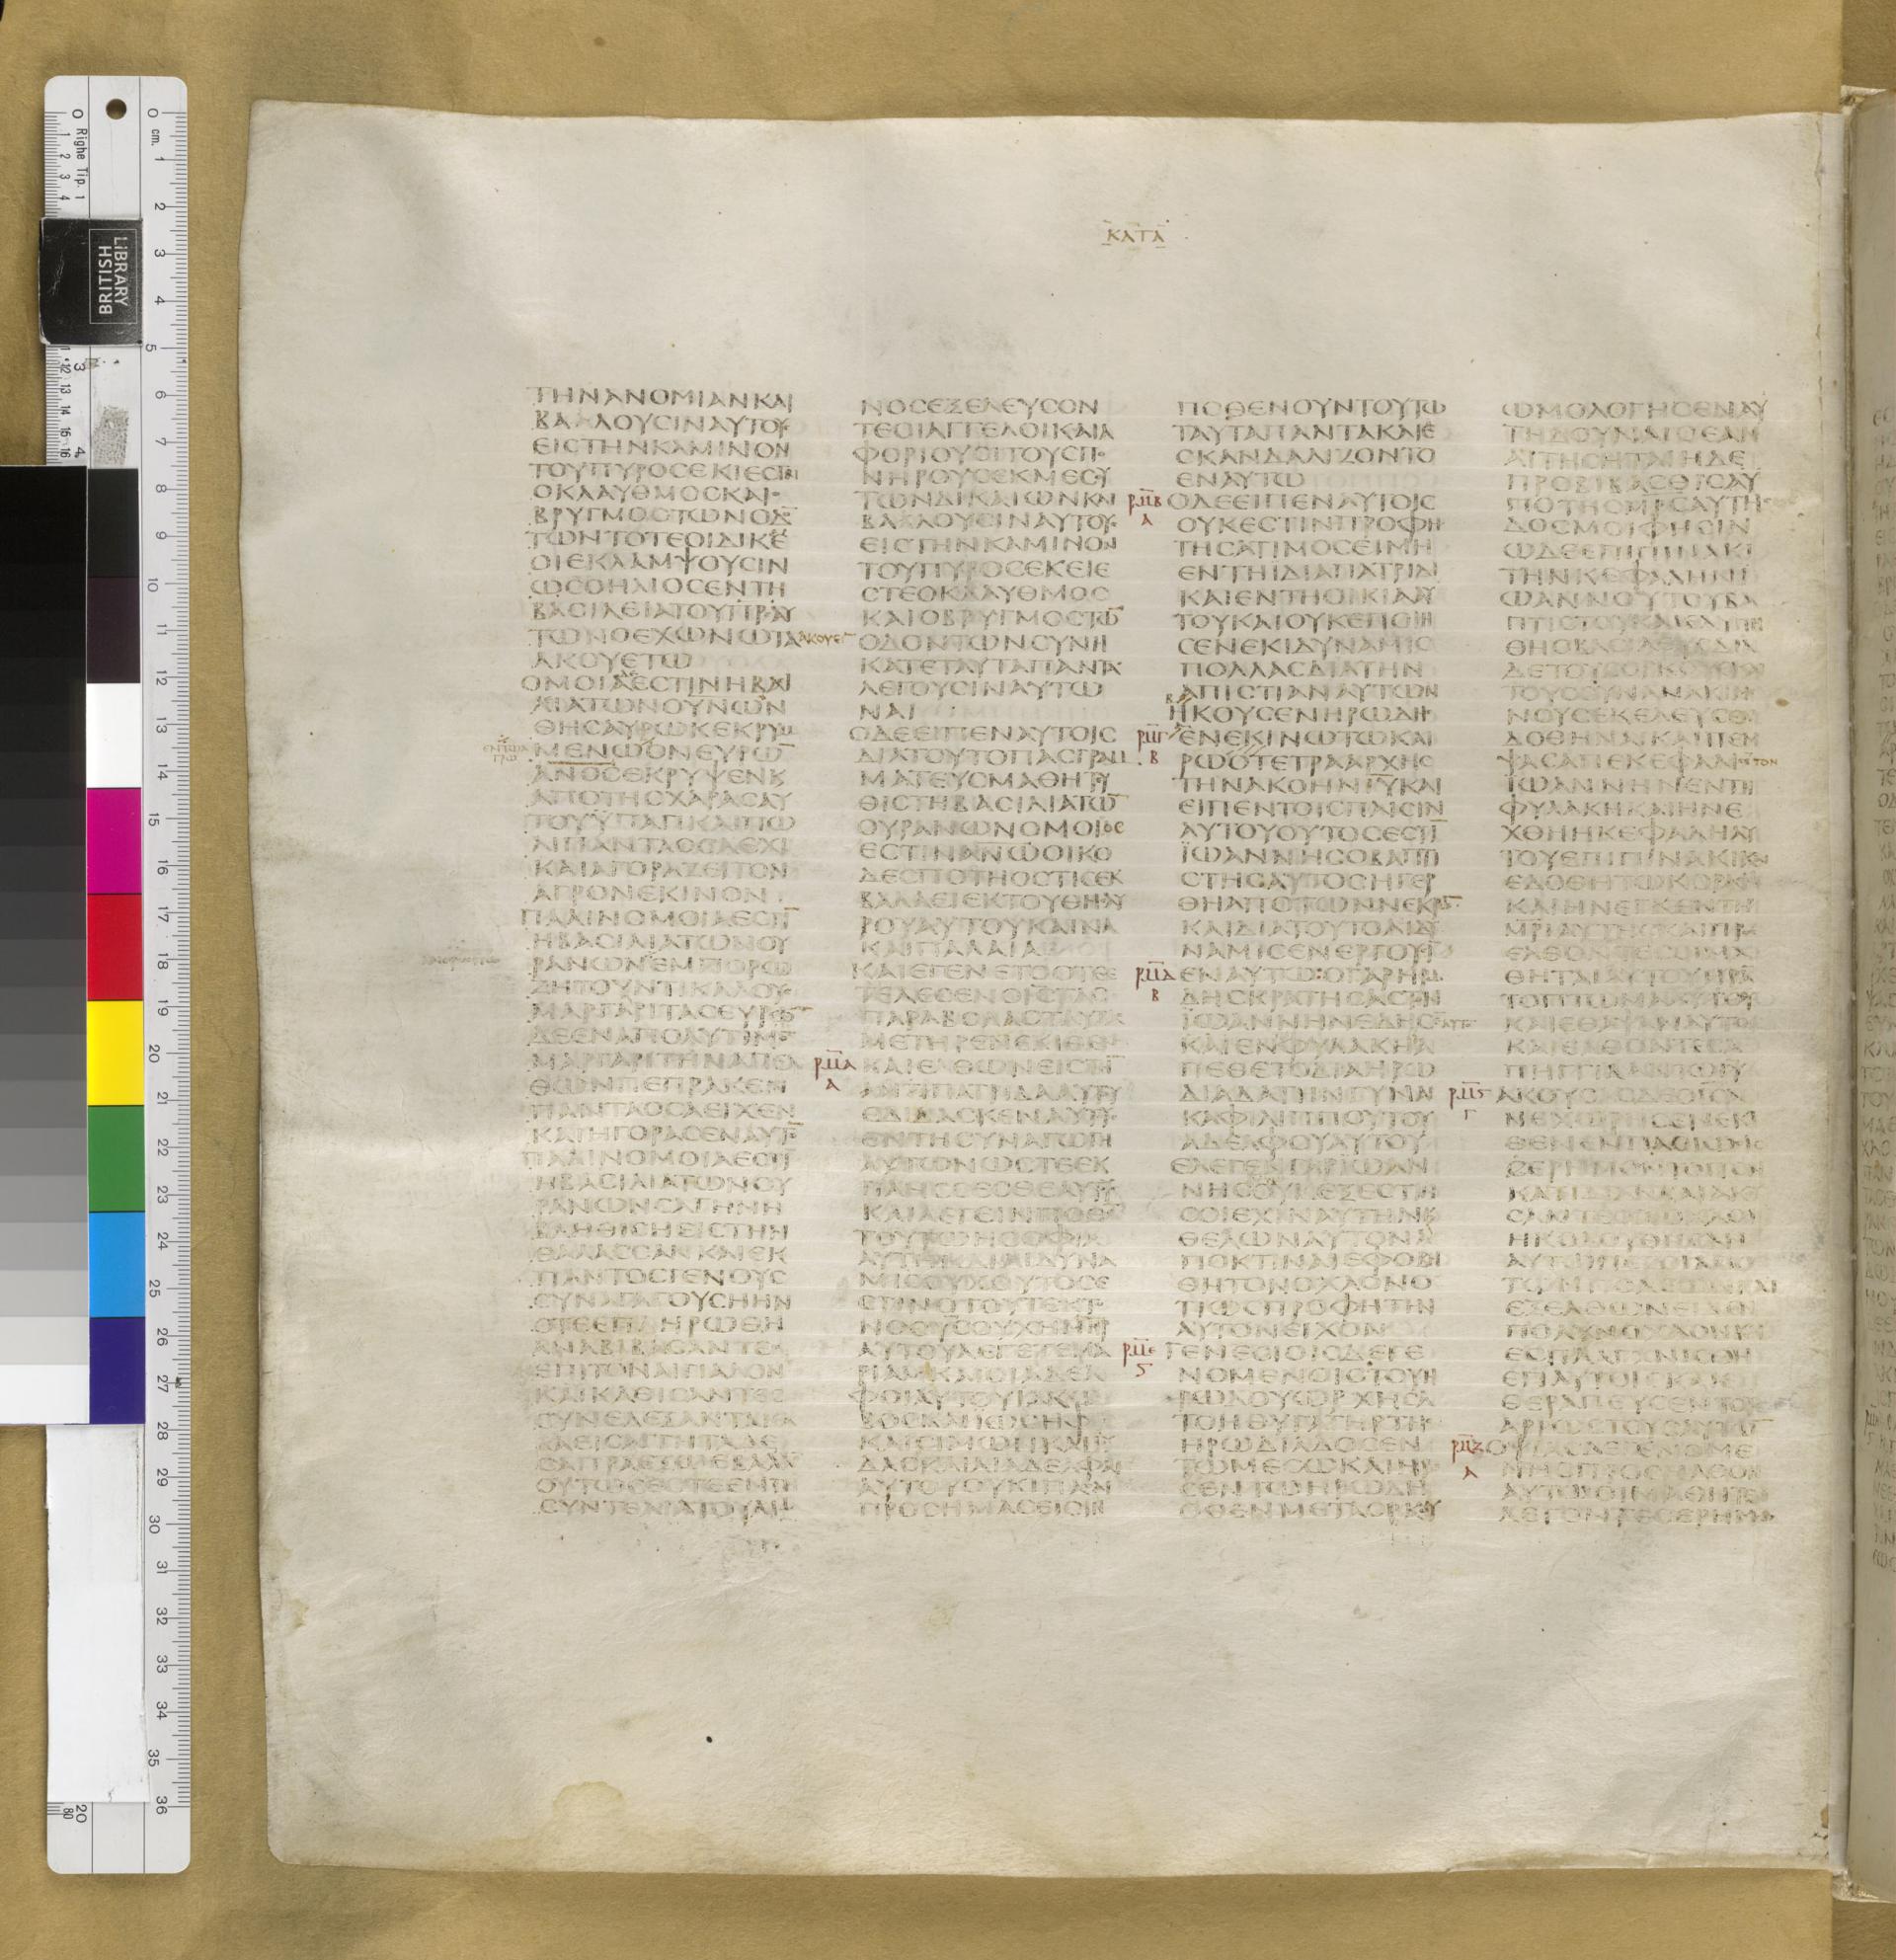 ΚΑΤΑ
ΤΗΝΑΝΟΜΙΑΝΚΑΙ
ΒΑΛΛΟΥCΙΝΑΥΤΟΥ
ΕΙCΤΗΝΚΑΜΙΝΟΝ
ΤΟΥΠΥΡΟCΕΚΙΕCΤΑΙ
ΟΚΛΑΥΘΜΟCΚΑΙΟ
ΒΡΥΓΜΟCΤΩΝΟΔΟ
ΤΩΝΤΟΤΕΟΙΔΙΚΕ
ΟΙΕΚΛΑΜΨΟΥCΙΝ
ΩCΟΗΛΙΟCΕΝΤΗ
ΒΑCΙΛΕΙΑΤΟΥΠΡCΑΥ
ΤΩΝΟΕΧΩΝΩΤΑ ΑΚΟΥΕΙΝ
ΑΚΟΥΕΤΩ
ΟΜΟΙΑΕCΤΙΝΗΒΑCΙ
ΛΙΑΤΩΝΟΥΝΩΝ
ΘΗCΑΥΡΩΚΕΚΡΥΜ
ΜΕΝΩΟΝΕΥΡΩ̅
ΑΝΟCΕΚΡΥΨΕΝΚ
ΑΠΟΤΗCΧΑΡΑCΑΥ
ΤΟΥΫΠΑΓΙΚΑΙΠΩ
ΛΙΠΑΝΤΑΟCΑΕΧΙ
ΚΑΙΑΓΟΡΑΖΕΙΤΟΝ
ΑΓΡΟΝΕΚΙΝΟΝ
ΠΑΛΙΝΟΜΟΙΑΕCΤΙ̅
ΗΒΑCΙΛΙΑΤΩΝΟΥ
ΡΑΝΩΝΕΜΠΟΡΩ
ΖΗΤΟΥΝΤΙΚΑΛΟΥC
ΜΑΡΓΑΡΙΤΑCΕΥΡΩ̅
ΔΕΕΝΑΠΟΛΥΤΙΜΟ̅
ΜΑΡΓΑΡΙΤΗΝΑΠΕΛ
ΘΩΝΠΕΠΡΑΚΕΝ
ΠΑΝΤΑΟCΑΕΙΧΕΝ
ΚΑΙΗΓΟΡΑCΕΝΑΥΤΟ̅
ΠΑΛΙΝΟΜΟΙΑΕCΤΙ̅
ΗΒΑCΙΛΙΑΤΩΝΟΥ
ΡΑΝΩΝCΑΓΗΝΗ
ΒΛΗΘΙCΗΕΙCΤΗΝ
ΘΑΛΑCCΑΝΚΑΙΕΚ
ΠΑΝΤΟCΓΕΝΟΥC
CΥΝΑΓΑΓΟΥCΗΗΝ
ΟΤΕΕΠΛΗΡΩΘΗ
ΑΝΑΒΙΒΑCΑΝΤΕC
ΕΠΙΤΟΝΑΙΓΙΑΛΟΝ
ΚΑΙΚΑΘΙCΑΝΤΕC
CΥΝΕΛΕΞΑΝΤΑ
CΑΠΡΑΕΞΩΕΒΑΛΑΝ
ΟΥΤΩCΕCΤΕΕΝΤΗ
CΥΝΤΕΛΙΑΤΟΥΑΙΩ
ΝΟCΕΞΕΛΕΥCΟΝ
ΤΕΟΙΑΓΓΕΛΟΙΚΑΙΑ
ΦΟΡΙΟΥCΙΤΟΥCΠΟ
ΝΗΡΟΥCΕΚΜΕCΟΥ
ΤΩΝΔΙΚΑΙΩΝΚΑΙ
ΒΑΛΛΟΥCΙΝΑΥΤΟΥC
ΕΙCΤΗΝΚΑΜΙΝΟΝ
ΤΟΥΠΥΡΟCΕΚΕΙΕ
CΤΕΟΚΛΑΥΘΜΟC
ΚΑΙΟΒΡΥΓΜΟCΤΩ̅
ΟΔΟΝΤΩΝCΥΝΗ
ΚΑΤΕΤΑΥΤΑΠΑΝΤΑ
ΛΕΓΟΥCΙΝΑΥΤΩ
ΝΑΙ
ΟΔΕΕΙΠΕΝΑΥΤΟΙC
ΔΙΑΤΟΥΤΟΠΑCΓΡΑΜ
ΜΑΤΕΥCΜΑΘΗΤΕΥ
ΘΙCΤΗΒΑCΙΛΙΑΤΩ̅
ΟΥΡΑΝΩΝΟΜΟΙΟC
ΕCΤΙΝΑΝΩΟΙΚΟ
ΔΕCΠΟΤΗΟCΤΙCΕΚ
ΒΑΛΛΕΙΕΚΤΟΥΘΗCΑΥ
ΡΟΥΑΥΤΟΥΚΑΙΝΑ
ΚΑΙΠΑΛΑΙΑ
ΚΑΙΕΓΕΝΕΤΟΟΤΕΕ
ΤΕΛΕCΕΝΟΙCΤΑC
ΠΑΡΑΒΟΛΑCΤΑΥΤΑC
ΜΕΤΗΡΕΝΕΚΙΘΕ
ΡΠΑ Α ΚΑΙΕΛΘΩΝΕΙCΤΗ̅
ΕΔΙΔΑCΚΕΝΑΥΤΟΥC
ΕΝΤΗCΥΝΑΓΩΓΗ
ΑΥΤΩΝΩCΤΕΕΚ
ΠΛΗCCΕCΘΕΑΥΤΟΥC
ΚΑΙΛΕΓΕΙΝΠΟΘΕ
ΤΟΥΤΩΗCΟΦΙΑ
ΑΥΤΗΚΑΙΑΙΔΥΝΑ
ΜΙCΟΥΧΟΥΤΟCΕ
CΤΙΝΟΤΟΥΤΕΚΤΟ
ΝΟCΥCΟΥΧΗΜΗΡ
ΑΥΤΟΥΛΕΓΕΤΕΜΑ
ΡΙΑΜΚΑΙΟΙΑΔΕΛ
ΦΟΙΑΥΤΟΥΙΑΚΩ
ΒΟCΚΑΙΙΩCΗΦ
ΚΑΙCΙΜΩΝΚΑΙΙΟΥ
ΔΑCΚΑΙΑΙΑΔΕΛΦΑΙ
ΑΥΤΟΥΟΥΚΙΠΑCΑΙ
ΠΡΟCΗΜΑCΕΙCΙΝ
ΠΟΘΕΝΟΥΝΤΟΥΤΩ
ΤΑΥΤΑΠΑΝΤΑΚΑΙΕ
CΚΑΝΔΑΛΙΖΟΝΤΟ
ΕΝΑΥΤΩ
ΡΠΒ Α ΟΔΕΕΙΠΕΝΑΥΤΟΙC
ΟΥΚΕCΤΙΝΠΡΟΦΗ
ΤΗCΑΤΙΜΟCΕΙΜΗ
ΕΝΤΗΙΔΙΑΠΑΤΡΙΔΙ
ΚΑΙΕΝΤΗΟΙΚΙΑΑΥ
ΤΟΥΚΑΙΟΥΚΕΠΟΙΗ
CΕΝΕΚΙΔΥΝΑΜΙC
ΠΟΛΛΑCΔΙΑΤΗΝ
ΑΠΙCΤΙΑΝΑΥΤΩΝ
ΗΚΟΥCΕΝΗΡΩΔΗC
ΡΠΓ Β ΕΝΕΚΙΝΩΤΩΚΑΙ
ΡΩΟΤΕΤΡΑΑΡΧΗC
ΤΗΝΑΚΟΗΝΙΥΚΑΙ
ΕΙΠΕΝΤΟΙCΠΑΙCΙΝ
ΑΥΤΟΥΟΥΤΟCΕCΤΙ̅
ΪΩΑΝΝΗCΟΒΑΠΤΙ
CΤΗCΑΥΤΟCΗΓΕΡ
ΘΗΑΠΟΤΩΝΝΕΚΡΩ̅
ΚΑΙΔΙΑΤΟΥΤΟΑΙΔΥ
ΝΑΜΙCΕΝΕΡΓΟΥCΙ
ΡΠΔ Β ΕΝΑΥΤΩ:ΟΓΑΡΗΡΩ
ΔΗCΚΡΑΤΗCΑCΤΟΝ
ΪΩΑΝΝΗΝΕΔΗCΕ
ΚΑΙΕΝΦΥΛΑΚΗΑ
ΠΕΘΕΤΟΔΙΑΗΡΩ
ΔΙΑΔΑΤΗΝΓΥΝΑΙ
ΚΑΦΙΛΙΠΠΟΥΤΟΥ
ΑΔΕΛΦΟΥΑΥΤΟΥ
ΕΛΕΓΕΝΓΑΡΪΩΑΝ
ΝΗCΟΥΚΕΞΕCΤΙΝ
CΟΙΕΧΙΝΑΥΤΗΝΚ
ΘΕΛΩΝΑΥΤΟΝΑ
ΠΟΚΤΙΝΑΙΕΦΟΒΗ
ΘΗΤΟΝΟΧΛΟΝΟ
ΤΙΩCΠΡΟΦΗΤΗΝ
ΑΥΤΟΝΕΙΧΟΝ
ΡΠΕ Ϛ ΓΕΝΕCΙΟΙCΔΕΓΕ
ΝΟΜΕΝΟΙCΤΟΥΗ
ΡΩΔΟΥΩΡΧΗCΑ
ΤΟΗΘΥΓΑΤΗΡΤΗC
ΗΡΩΔΙΑΔΟCΕΝ
ΤΩΜΕCΩΚΑΙΗΡΕ
CΕΝΤΩΗΡΩΔΗ
ΟΘΕΝΜΕΤΑΟΡΚΟΥ
ΩΜΟΛΟΓΗCΕΝΑΥ
ΤΗΔΟΥΝΑΙΟΕΑΝ
ΑΙΤΗCΗΤΑΙΗΔΕ
ΠΡΟΒΙΒΑCΘΙCΑΥ
ΠΟΤΗCΜΡCΑΥΤΗC
ΔΟCΜΟΙΦΗCΙΝ
ΩΔΕΕΠΙΠΙΝΑΚΙ
ΤΗΝΚΕΦΑΛΗΝΙ
ΩΑΝΝΟΥΤΟΥΒΑ
ΠΤΙCΤΟΥΚΑΙΕΛΥΠΗ
ΘΗΟΒΑCΙΛΕΥCΔΙΑ
ΔΕΤΟΥCΟΡΚΟΥCΚΑΙ
ΤΟΥCCΥΝΑΝΑΚΙΜΕ
ΝΟΥCΕΚΕΛΕΥCΕΝ
ΔΟΘΗΝΑΙΚΑΙΠΕΜ
ΨΑCΑΠΕΚΕΦΑΛΙCΕ ΤΟΝ
ΪΩΑΝΝΗΝΕΝΤΗ
ΦΥΛΑΚΗΚΑΙΗΝΕ
ΧΘΗΗΚΕΦΑΛΗΑΥ
ΤΟΥΕΠΙΠΙΝΑΚΙΚΑΙ
ΕΔΟΘΗΤΩΚΟΡΑCΙ
ΚΑΙΗΝΕΓΚΕΝΤΗ
ΜΡΙΑΥΤΗCΚΑΙΠΡΟC
ΕΛΘΟΝΤΕCΟΙΜΑ
ΘΗΤΑΙΑΥΤΟΥΗΡΑ̅
ΤΟΠΤΩΜΑΑΥΤΟΥ
ΚΑΙΕΘΑΨΑΝΑΥΤΟ
ΚΑΙΕΛΘΟΝΤΕCΑ
ΠΗΓΓΙΛΑΝΤΩΙΥ
ΡΠϚ Γ ΑΚΟΥCΑCΔΕΟΙC
ΝΕΧΩΡΗCΕΝΕΚΙ
ΘΕΝΕΝΠΛΟΙΩΕΙC
ΕΡΗΜΟΝΤΟΠΟΝ
ΚΑΤΙΔΙΑΝΚΑΙΑΚΟΥ
CΑΝΤΕCΟΙΟΧΛΟΙ
ΗΚΟΛΟΥΘΗCΑΝ
ΕΞΕΛΘΩΝΕΙΔΕΝ
ΠΟΛΥΝΟΧΛΟΝΚΑΙ
ΕCΠΛΑΓΧΝΙCΘΗ
ΕΠΑΥΤΟΙCΚΑΙΕ
ΘΕΡΑΠΕΥCΕΝΤΟΥC
ΑΡΡΩCΤΟΥCΑΥΤΩ̅
ΡΠΖ Α ΟΨΙΑCΔΕΓΕΝΟΜΕ
ΝΗCΠΡΟCΗΛΘΟΝ
ΑΥΤΩΟΙΜΑΘΗΤΑΙ
ΛΕΓΟΝΤΕCΕΡΗΜΟC
LIBRARY
BRITISH
Righe Tip. 1
cm.